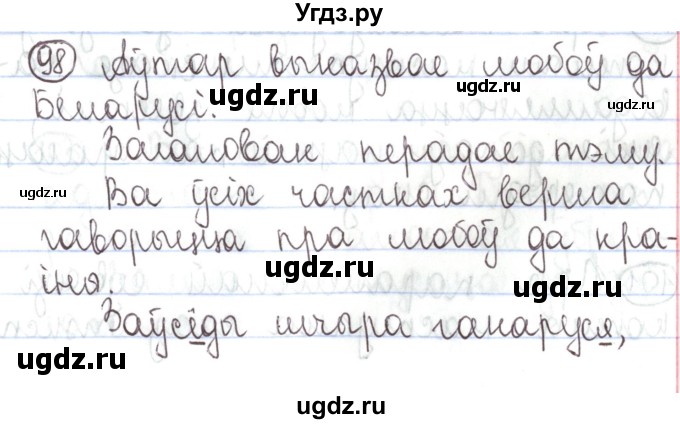 Угдз.ру
98 Аўтар выказвае любоў да
ugdz.ru
ugdz.ru
Беларусі.
Загаловак перадае тэму.
ugdz.ru
ugdz.ru
ugdz.ru
Ва ўсіх частках верша
гаворыцца пра любоў да кра-
ugdz.ru
ugdz.ru
іня.
Заўсіды шчыра ганаруся,
ugdz.ru
ugdz.ru
ugdz.ru